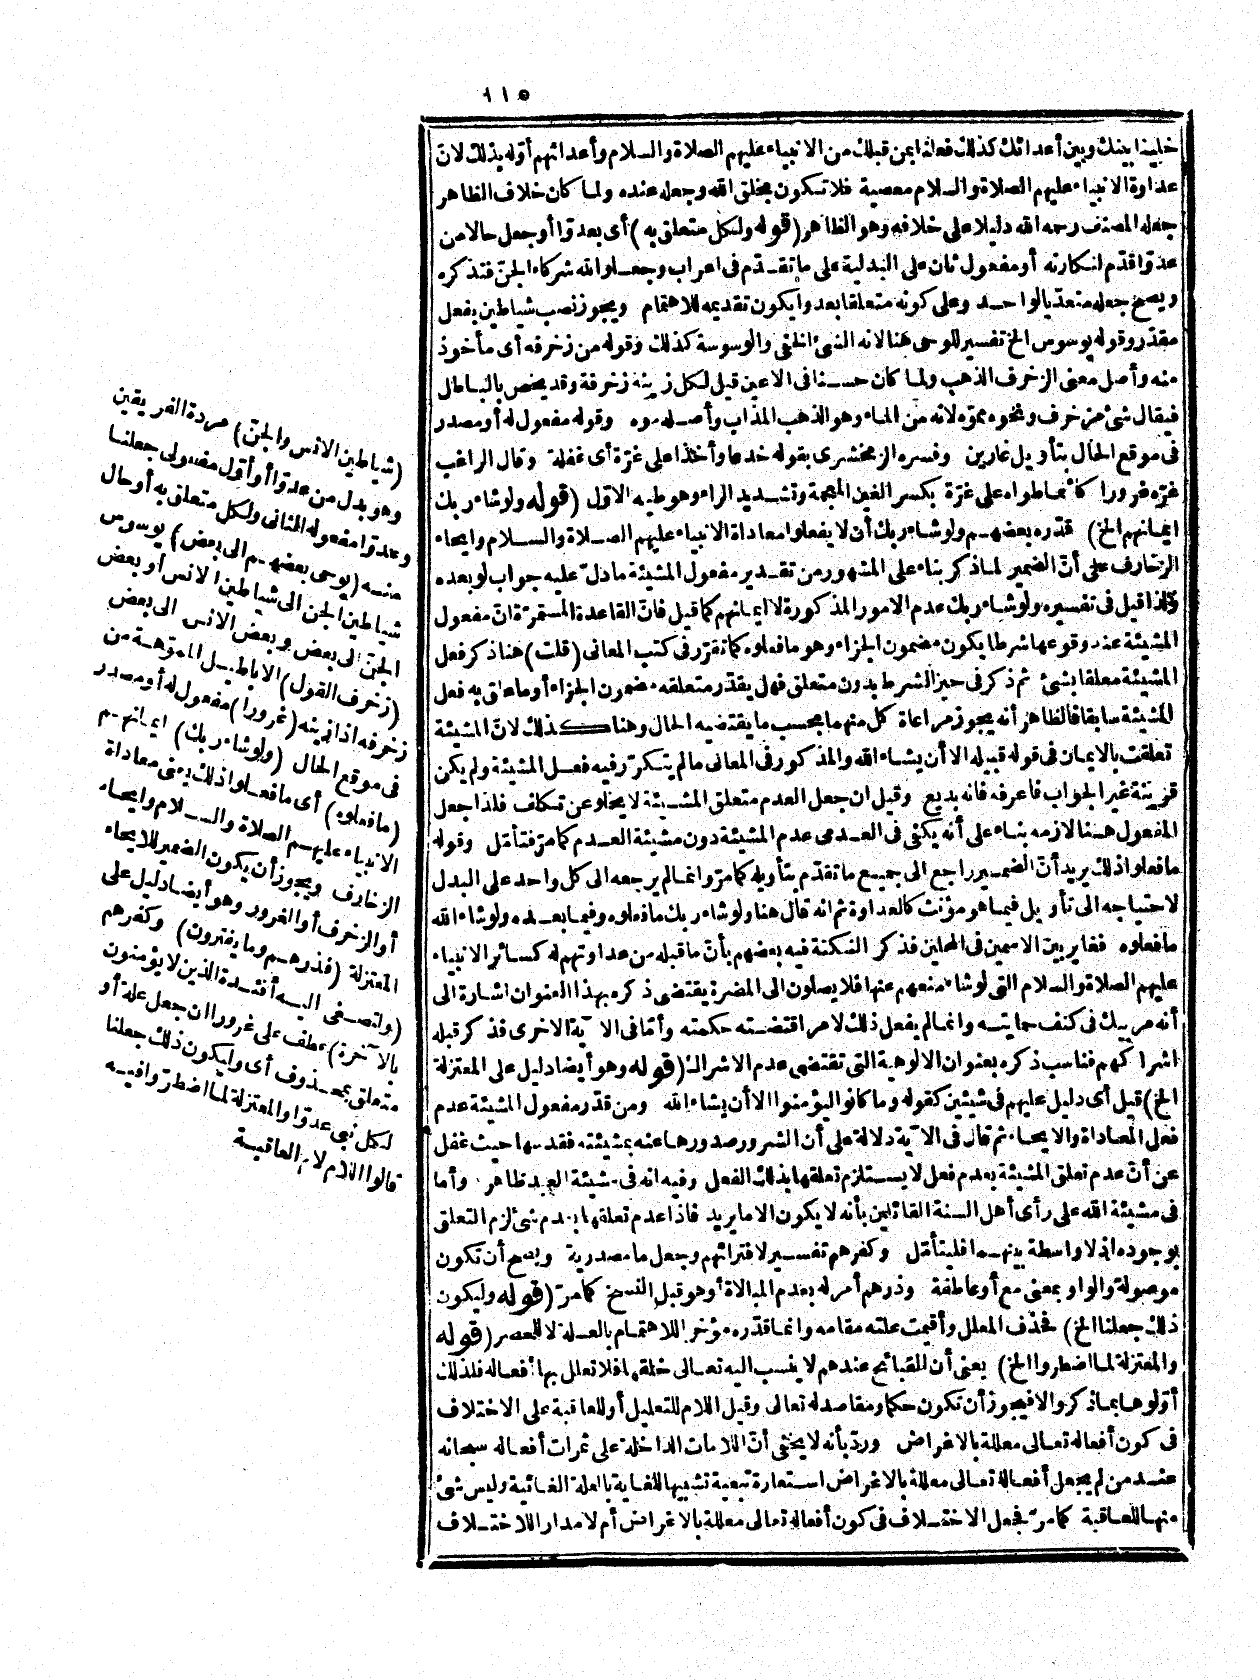 ١١٥
خلينا بينك وبين أعدائك كذلك فعلنا بمن قبلك من الانبياء عليهم الصلاة والسلام وأعدائهم أوّله بذلك لانّ
عداوة الانبياء عليهم الصلاة والسلام معصية فلا تكون بخلق الله وجعله عنده ولما كان خلاف الظاهر
جعله المصنف رحمه الله دليلا على خلافه وهو الظاهر (قوله ولكل متعلق به) أى بعدوّا أو جعل حالا من
عدوّا قدّم لنكارته أو مفعول ثان على البدلية على ما تقدّم فى اعراب وجعلوا لله شركاء الجنّ فتذكره
ويصح جعله متعدّيا لواحد وعلى كونه متعلقا بعدوا يكون تقديمه للاهتمام ويجوز نصب شياطين بفعل
مقدّر وقوله يوسوس الخ تفسير للوحى هنا لانه الشئ الخفىّ والوسوسة كذلك وقوله من زخرفه أى مأخوذ
منه وأصل معنى الزخرف الذهب ولما كان حسنا فى الاعين قيل لكل زينة زخرفة وقد يخص بالباطل
فيقال شئ مزخرف ونحوه مموّه لانه من الماء وهو الذهب المذاب وأصله موه وقوله مفعول له أو مصدر
فى موقع الحال بتأويل غارين وفسره الزمخشرى بقوله خدعا وأخذا على غرّة أى غفلة وقال الراغب
غرّه غرورا كأنما طواه على غرّة بكسر الغين المعجمة وتشديد الراء وهو طيه الاوّل (قوله ولو شاء ربك
ايمانهم الخ) قدّره بعضهم ولو شاء ربك أن لا يفعلوا معاداة الانبياء عليهم الصلاة والسلام وايحاء
الزخارف على أنّ الضمير لما ذكر بناء على المشهور من تقدير مفعول المشيئة ما دلّ عليه جواب لو بعده
ولذا قيل فى تفسيره ولو شاء ربك عدم الامور المذكورة لا ايمانهم كما قيل فانّ القاعدة المستمرّة انّ مفعول
المشيئة عند وقوعها شرطا يكون مضمون الجزاء وهو ما فعلوه كما تقرّر فى كتب المعانى (قلت) هنا ذكر فعل
المشيئة معلقا بشئ ثم ذكر فى حيز الشرط بدون متعلق فهل يقدّر متعلقه مضمون الجزاء أو ما علق به فعل
المشيئة سابقا فالظاهر أنه يجوز مراعاة كل منهما بحسب ما يقتضيه الحال وهنا كذلك لانّ المشيئة
تعلقت بالايمان فى قوله قبيله الا أن يشاء الله والمذكور فى المعانى ما لم يتكرّر فيه فعل المشيئة ولم يكن
قرينة غير الجواب فاعرفه فانه بديع وقيل ان جعل العدم متعلق المشيئة لا يخلو عن تكلف فلذا جعل
المفعول هنا لازمه بناء على أنه يكفى فى العدمى عدم المشيئة دون مشيئة العدم كما مرّ فتأمّل وقوله
ما فعلوا ذلك يريد أنّ الضمير راجع الى جميع ما تقدّم بتأويله كما مرّ وانما لم يرجعه الى كل واحد على البدل
لاحتياجه الى تأويل فيما هو مؤنث كالعداوة ثم انه قال هنا ولو شاء ربك ما فعلوه وفيما بعده ولو شاء الله
ما فعلوه فغاير بين الاسمين فى المحلين فذكر النكتة فيه بعضهم بأنّ ما قبله من عداوتهم له كسائر الانبياء
عليهم الصلاة والسلام التى لو شاء منعهم عنها فلا يصلون الى المضرة يقتضى ذكره بهذا العنوان اشارة الى
أنه مربيك فى كنف حمايته وانما لم يفعل ذلك لامر اقتضته حكمته وأمّا فى الآية الاخرى فذكر قبله
اشراكهم فناسب ذكره بعنوان الالوهية التى تقتضى عدم الاشراك (قوله وهو أيضا دليل على المعتزلة
الخ) قيل أى دليل عليهم فى شيئين كقوله وما كانوا ليؤمنوا الا أن يشاء الله ومن قدّر مفعول المشيئة عدم
فعل المعاداة والايحاء ثم قال فى الآية دلالة على أن الشرور صدورها عنه بمشيئته فقد سها حيث غفل
عن أنّ عدم تعلق المشيئة بعدم فعل لا يستلزم تعلقها بذلك الفعل وفيه انه فى مشيئة العبد ظاهر وأما
فى مشيئة الله على رأى أهل السنة القائلين بأنه لا يكون الا ما يريد فاذا عدم تعلقها بعدم شئ لزم التعلق
بوجوده اذ لا واسطة بينهما فليتأمّل وكفرهم تفسير لافترائهم وجعل ما مصدرية ويصح أن تكون
موصولة والواو بمعنى مع أو عاطفة وذرهم أمر له بعدم المبالاة أو هو قبل النسخ كما مرّ (قوله وليكون
ذلك جعلنا الخ) فحذف المعلل وأقيمت علته مقامه وانما قدّره مؤخر اللاهتمام بالعلة لا للحصر (قوله
والمعتزلة لما اضطروا الخ) يعنى أن القبائح عندهم لا ينسب اليه تعالى خلقها فلا تعلل بها أفعاله فلذلك
أوّلوها بما ذكر والا فيجوز أن تكون حكما ومقاصد له تعالى وقيل اللام للتعليل أو للعاقبة على الاختلاف
فى كون أفعاله تعالى معللة بالاغراض وردّ بأنه لا يخفى أنّ اللامات الداخلة على ثمرات أفعاله سبحانه
عند من لم يجعل أفعاله تعالى معللة بالاغراض استعارة تبعية تشبيها للغاية بالعلة الغائية وليس شئ
منها للعاقبة كما مرّ فجعل الاختلاف فى كون أفعاله تعالى معللة بالاغراض أم لا مدار اللاختلاف
(شياطين الانس والجنّ) مردة الفريقين
وهو بدل من عدوّا أو أوّل مفعولى جعلنا
وعدوّا مفعوله الثانى ولكل متعلق به أو حال
منه (يوحى بعضهم الى بعض) يوسوس
شياطين الجن الى شياطين الانس أو بعض
الجنّ الى بعض وبعض الانس الى بعض
(زخرف القول) الاباطيل المموّهة من
زخرفه اذا زينه (غرورا) مفعول له أو مصدر
فى موقع الحال (ولو شاء ربك) ايمانهم
(ما فعلوه) أى ما فعلوا ذلك يعنى معاداة
الانبياء عليهم الصلاة والسلام وايحاء
الزخارف ويجوز أن يكون الضمير للايحاء
أو الزخرف أو الغرور وهو أيضا دليل على
المعتزلة (فذرهم وما يفترون) وكفرهم
(ولتصغى اليه أفئدة الذين لا يؤمنون
بالآخرة) عطف على غرورا ان جعل علة أو
متعلق بمحذوف أى وليكون ذلك جعلنا
لكل نبى عدوّا والمعتزلة لما اضطرّوا فيه
قالوا اللام لام العاقبة